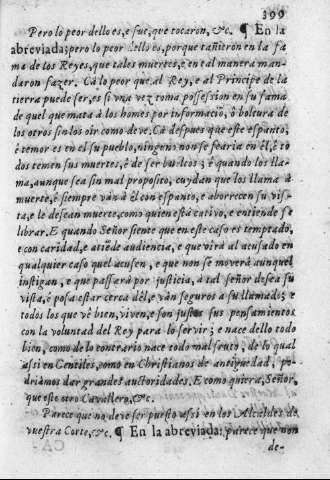 399
Pero lo peor dello es, e fue, que tocaron, &c. ¶ En la
abreviada; pero lo peor dello es, porque tañieron en la fa
ma de los Reyes, que tales muertes, e en tal manera man-
daron fazer. Cá lo peor que al Rey, e al Principe de la
tierra puede ser, es si vna vez toma possession en su fama
de quel que mata à los homes por informaciõ, ò boltura de
los otros sin los oir como deve. Cà despues que este espanto,
è temor es en el su pueblo, ninguno non se fearia en èl, è to
dos temen sus muertes, è de ser burleos; è quando los lla-
ma, aunque sea sin mal proposito, cuydan que los llama à
muerte, è siempre vàn à èl con espanto, e aborrecen su vis-
ta, e le desean muerte, como quien està cativo, e entiende se
librar. E quando Señor siente que en este caso es temptado,
e con caridad, e atiẽde audiencia, e que virà al acusado en
qualquier caso quel acusen, e que non se moverà aunquel
instigan, e que passarà por justicia, à tal señor desea su
vista, è posa estar cerca dèl, e vàn seguros a su llamado; e
todos los que vè bien, viven, e son justos sus pensamientos
con la voluntad del Rey para lo servir; e nace dello todo
bien, como de lo contrario nace todo mal seuto; de lo qual
assi en Gentiles, como en Christianos de antiguedad, po-
driamos dar grandes auctoridades. E como quiera, Señor,
que este otro Cavallero, &c.
Parece que no deve ser puesto assi en los Alcaldes de
vuestra Corte, &c. ¶ En la abreviada: parece que non
de-